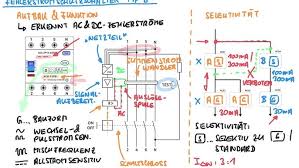 FEHLERSTROMSCHUTZSCHALTER TYP B
AUFBAU & FUNKTION
↳ ERKENNT AC & DC-FEHLERSTRÖME
NETZTEIL
SUMMENSTROM
WANDLER
SIGNAL-
AUFBEREIT.
AUSLÖSE-
SPULE
TEST
SCHALTSCHLOSS
G... BAUFORM
~ WECHSEL-&
PULSSTROM
MISCHFREQUENZ
ALLSTROMSENSITIV
SELEKTIVITÄT
300mA
300mA
X
A
S
B
S
VERBOTEN
100mA
30mA
X
A
G
A
G
B
G
SELEKTIVITÄT:
S SELEKTIV ZU G
STANDARD
IΔN : 3:1